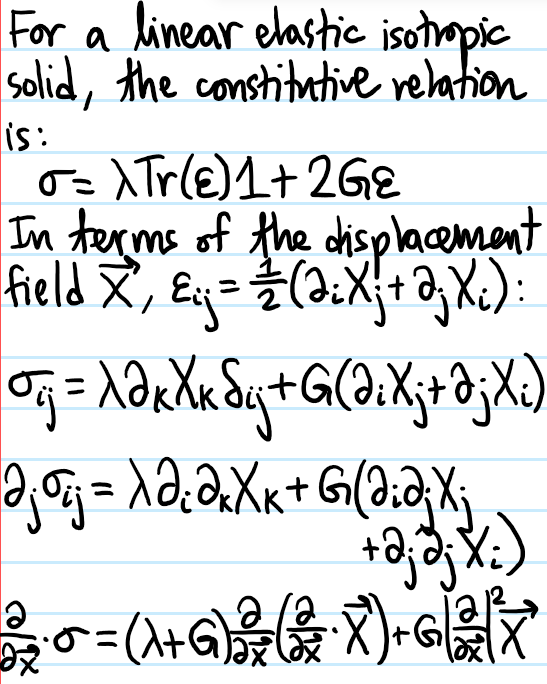 For a linear elastic isotropic
solid, the constitutive relation
is:
σ= λTr(ε)1+2Gε
In terms of the displacement
field X⃗, εᵢⱼ=½(∂ᵢXⱼ+∂ⱼXᵢ):
σᵢⱼ=λ∂ₖXₖδᵢⱼ+G(∂ᵢXⱼ+∂ⱼXᵢ)
∂ⱼσᵢⱼ=λ∂ᵢ∂ₖXₖ+G(∂ᵢ∂ⱼXⱼ
+∂ⱼ∂ⱼXᵢ)
∂/∂x⃗·σ=(λ+G)∂/∂x⃗(∂/∂x⃗·X⃗)+G|∂/∂x⃗|²X⃗